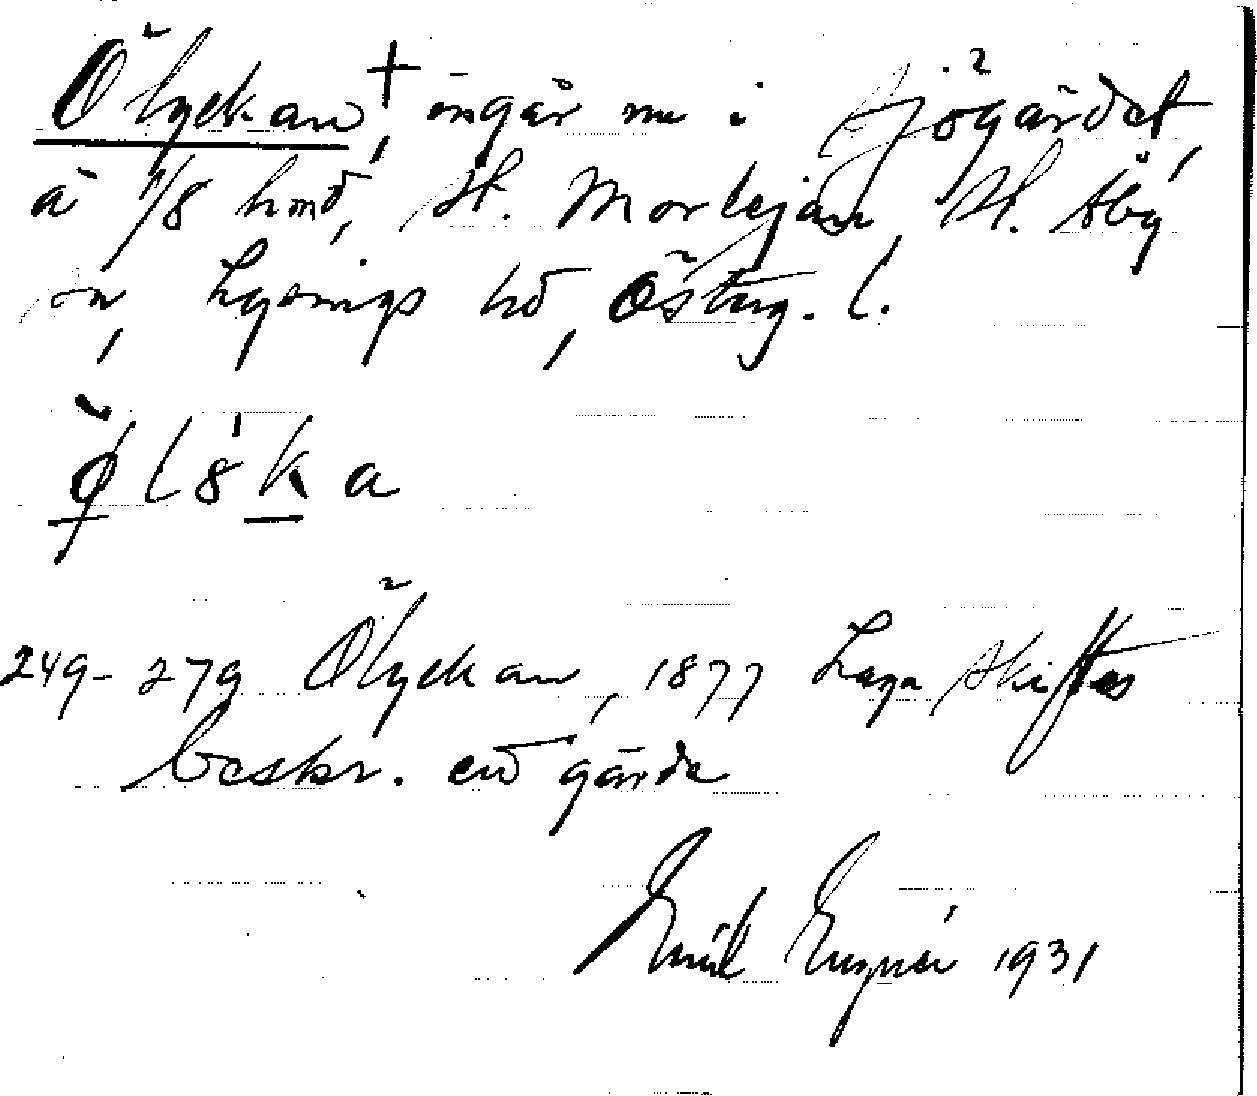 Ölyckan †, ingår nu i Sjögärdet,
å 1/8 hmd, St. Morlejan, St. Åby
sn, Lysings hd, Österg. l.
ø̣ l 8 k a
249-279 Ölyckan, 1877 Laga Skiftes
beskr. end gärde
Emil 1931